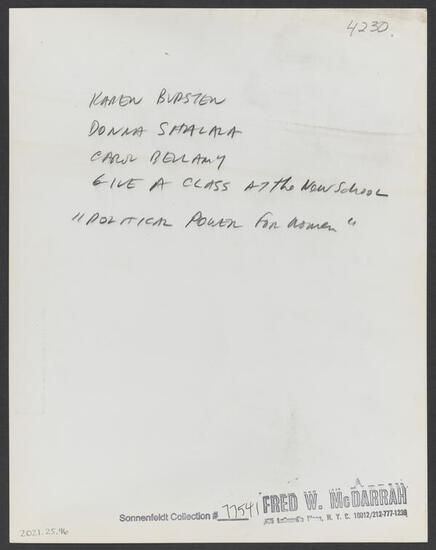 4230.
KAREN BURSTEN
DONNA SHALALA
CAROL BELLAMY
GIVE A CLASS AT the New School
"POLITICAL POWER For Women"
Sonnenfeldt Collection # 77541
FRED W. McDARRAH
N. Y. C. 10012/212-777-1236
2021.25.46